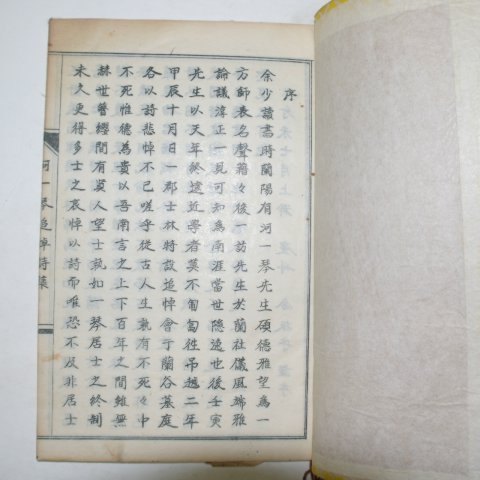 序
余少讀書時蘭陽有河一琴先生碩德雅望爲一
方師表名聲藉々後一訪先生於蘭社儀風端雅
論議淳正一見可知爲南涯當世隱逸也後壬寅
先生以天年終遠近學者莫不匍匐徃吊越二年
甲辰十月日一郡士林特設追悼會于蘭谷墓庭
各以詩悲悼不已嗟乎從古人生孰有不死々中
不死惟德爲貴以吾南言之上下百年之間雖無
赫世簪纓間有奠人望士孰如一琴居士之終制
未久更得多士之哀悼以詩而唯恐不及非居士
河一琴追悼詩集